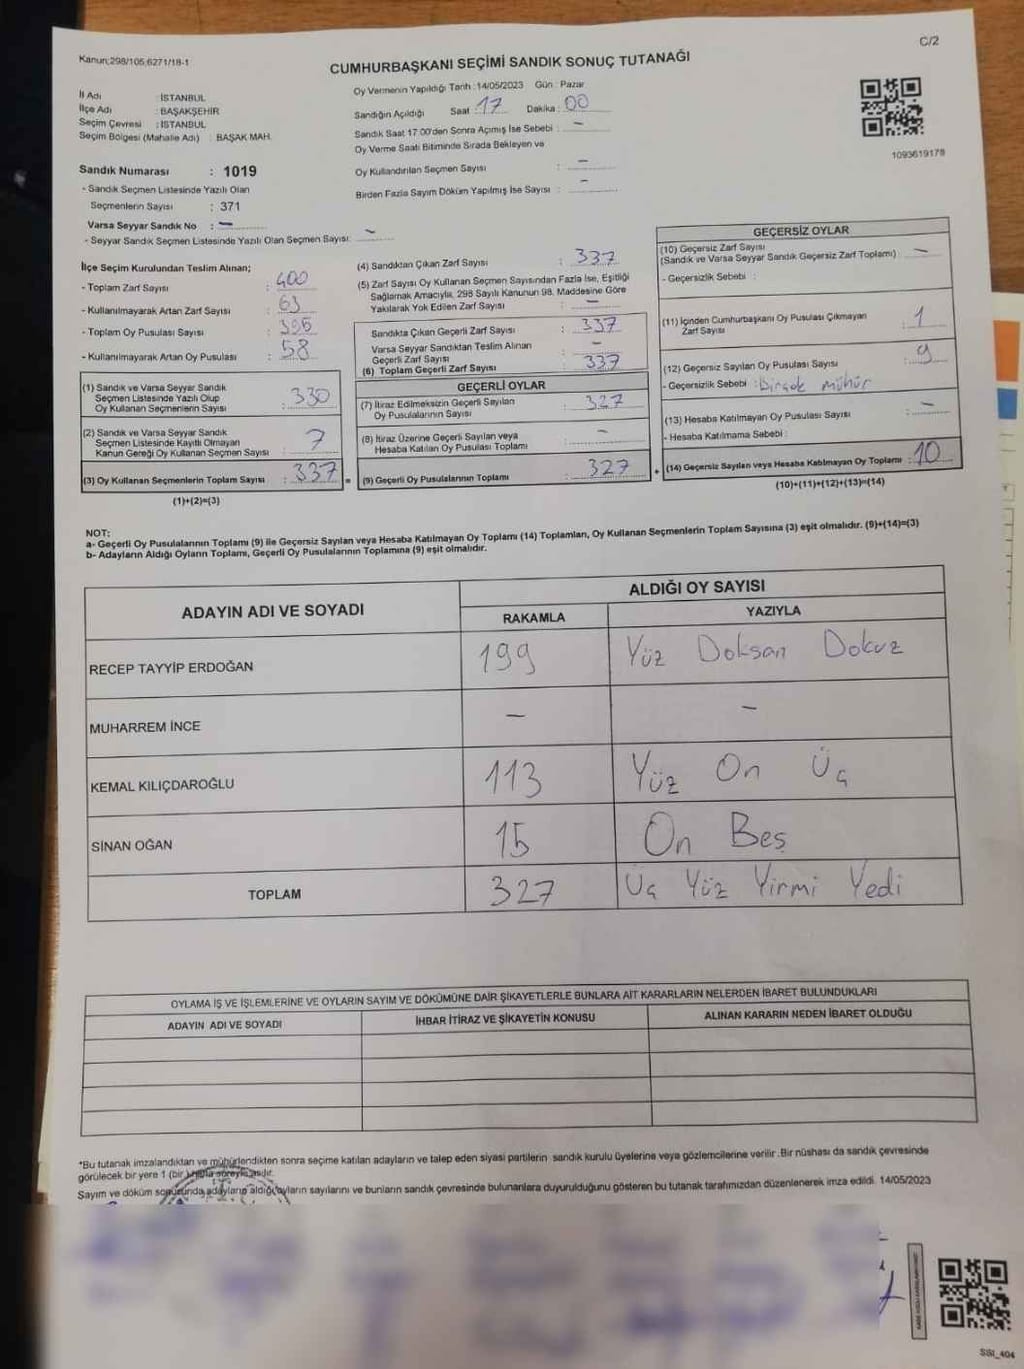 C/2
Kanun;298/105,6271/18-1
CUMHURBAŞKANI SEÇİMİ SANDIK SONUÇ TUTANAĞI
İl Adı : İSTANBUL
İlçe Adı : BAŞAKŞEHİR
Seçim Çevresi : İSTANBUL
Seçim Bölgesi (Mahalle Adı) : BAŞAK MAH.
Sandık Numarası : 1019
- Sandık Seçmen Listesinde Yazılı Olan
Seçmenlerin Sayısı : 371
Varsa Seyyar Sandık No : —
- Seyyar Sandık Seçmen Listesinde Yazılı Olan Seçmen Sayısı: —
Oy Vermenin Yapıldığı Tarih :14/05/2023 Gün : Pazar
Sandığın Açıldığı Saat : 17 Dakika : 00
Sandık Saat 17.00'den Sonra Açımış İse Sebebi : —
Oy Verme Saati Bitiminde Sırada Bekleyen ve
Oy Kullandırılan Seçmen Sayısı : —
Birden Fazla Sayım Döküm Yapılmış İse Sayısı : —
1093619178
İlçe Seçim Kurulundan Teslim Alınan;
- Toplam Zarf Sayısı : 400
- Kullanılmayarak Artan Zarf Sayısı : 63
- Toplam Oy Pusulası Sayısı : 395
- Kullanılmayarak Artan Oy Pusulası : 58
(1) Sandık ve Varsa Seyyar Sandık
Seçmen Listesinde Yazılı Olup
Oy Kullanan Seçmenlerin Sayısı : 330
(2) Sandık ve Varsa Seyyar Sandık
Seçmen Listesinde Kayıtlı Olmayan
Kanun Gereği Oy Kullanan Seçmen Sayısı : 7
(3) Oy Kullanan Seçmenlerin Toplam Sayısı : 337 =
(1)+(2)=(3)
(4) Sandıktan Çıkan Zarf Sayısı : 337
(5) Zarf Sayısı Oy Kullanan Seçmen Sayısından Fazla İse, Eşitliği
Sağlamak Amacıyla, 298 Sayılı Kanunun 98. Maddesine Göre
Yakılarak Yok Edilen Zarf Sayısı : —
Sandıkta Çıkan Geçerli Zarf Sayısı : 337
Varsa Seyyar Sandıktan Teslim Alınan
Geçerli Zarf Sayısı : —
(6) Toplam Geçerli Zarf Sayısı : 337
GEÇERLİ OYLAR
(7) İtiraz Edilmeksizin Geçerli Sayılan
Oy Pusulalarının Sayısı : 327
(8) İtiraz Üzerine Geçerli Sayılan veya
Hesaba Katılan Oy Pusulası Toplamı : —
(9) Geçerli Oy Pusulalarının Toplamı : 327 +
GEÇERSİZ OYLAR
(10) Geçersiz Zarf Sayısı
(Sandık ve Varsa Seyyar Sandık Geçersiz Zarf Toplamı) : —
- Geçersizlik Sebebi :
(11) İçinden Cumhurbaşkanı Oy Pusulası Çıkmayan
Zarf Sayısı : 1
(12) Geçersiz Sayılan Oy Pusulası Sayısı : 9
- Geçersizlik Sebebi : Birçok mühür
(13) Hesaba Katılmayan Oy Pusulası Sayısı : —
- Hesaba Katılmama Sebebi :
(14) Geçersiz Sayılan veya Hesaba Katılmayan Oy Toplamı : 10
(10)+(11)+(12)+(13)=(14)
NOT:
a- Geçerli Oy Pusulalarının Toplamı (9) ile Geçersiz Sayılan veya Hesaba Katılmayan Oy Toplamı (14) Toplamları, Oy Kullanan Seçmenlerin Toplam Sayısına (3) eşit olmalıdır. (9)+(14)=(3)
b- Adayların Aldığı Oyların Toplamı, Geçerli Oy Pusulalarının Toplamına (9) eşit olmalıdır.
ADAYIN ADI VE SOYADI ALDIĞI OY SAYISI
RAKAMLA YAZIYLA
RECEP TAYYİP ERDOĞAN 199 Yüz Doksan Dokuz
MUHARREM İNCE — —
KEMAL KILIÇDAROĞLU 113 Yüz On Üç
SİNAN OĞAN 15 On Beş
TOPLAM 327 Üç Yüz Yirmi Yedi
OYLAMA İŞ VE İŞLEMLERİNE VE OYLARIN SAYIM VE DÖKÜMÜNE DAİR ŞİKAYETLERLE BUNLARA AİT KARARLARIN NELERDEN İBARET BULUNDUKLARI
ADAYIN ADI VE SOYADI İHBAR İTİRAZ VE ŞİKAYETİN KONUSU ALINAN KARARIN NEDEN İBARET OLDUĞU
*Bu tutanak imzalandıktan ve mühürlendikten sonra seçime katılan adayların ve talep eden siyasi partilerin sandık kurulu üyelerine veya gözlemcilerine verilir. Bir nüshası da sandık çevresinde
görülecek bir yere 1 (bir) hafta süreyle asılır.
Sayım ve döküm sonucunda adayların aldığı oyların sayılarını ve bunların sandık çevresinde bulunanlara duyurulduğunu gösteren bu tutanak tarafımızdan düzenlenerek imza edildi. 14/05/2023
SSI_404